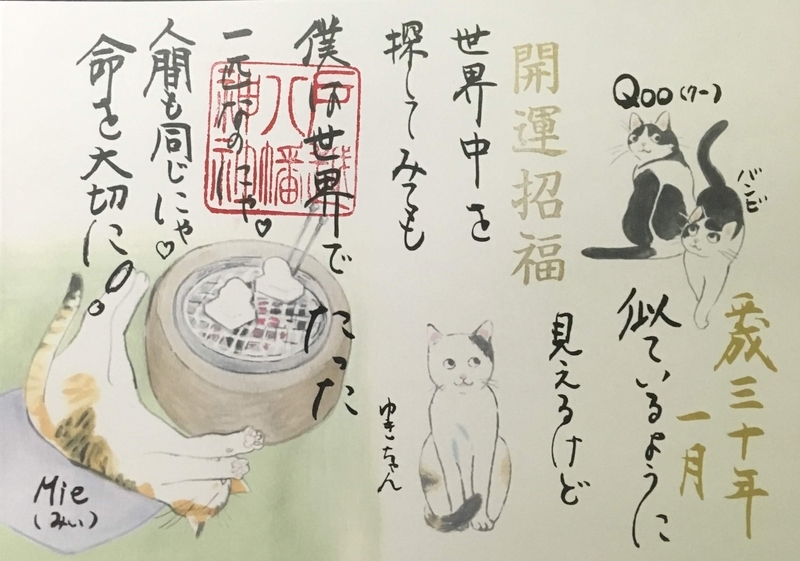 Qoo(クー)
バンビ
平成三十年
一月
似ているように
見えるけど
開運招福
世界中を
探してみても
僕は世界でたった
一匹なのにゃ♡
人間も同じにゃ♡
命を大切に。
戸越
八幡
神社
ゆきちゃん
Mie
(みい)